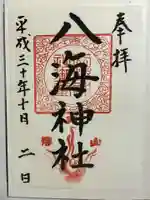 奉拝
八海神社
平成三十年十月二日